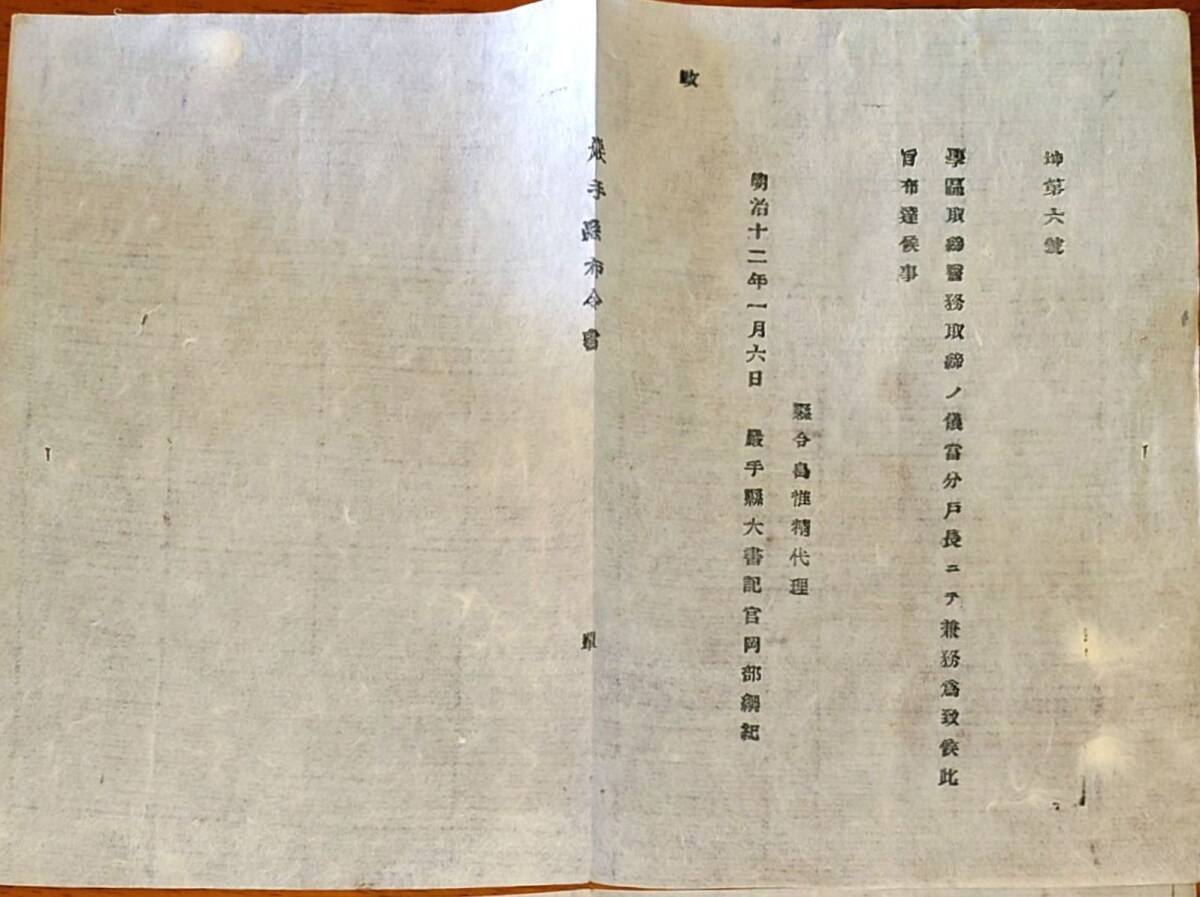 坤第六號
學區取締醫務取締ノ儀當分戸長ニテ兼務爲致候此
旨布達候事
縣令島惟精代理
明治十二年一月六日 巖手縣大書記官岡部綱紀
巖手縣布令書